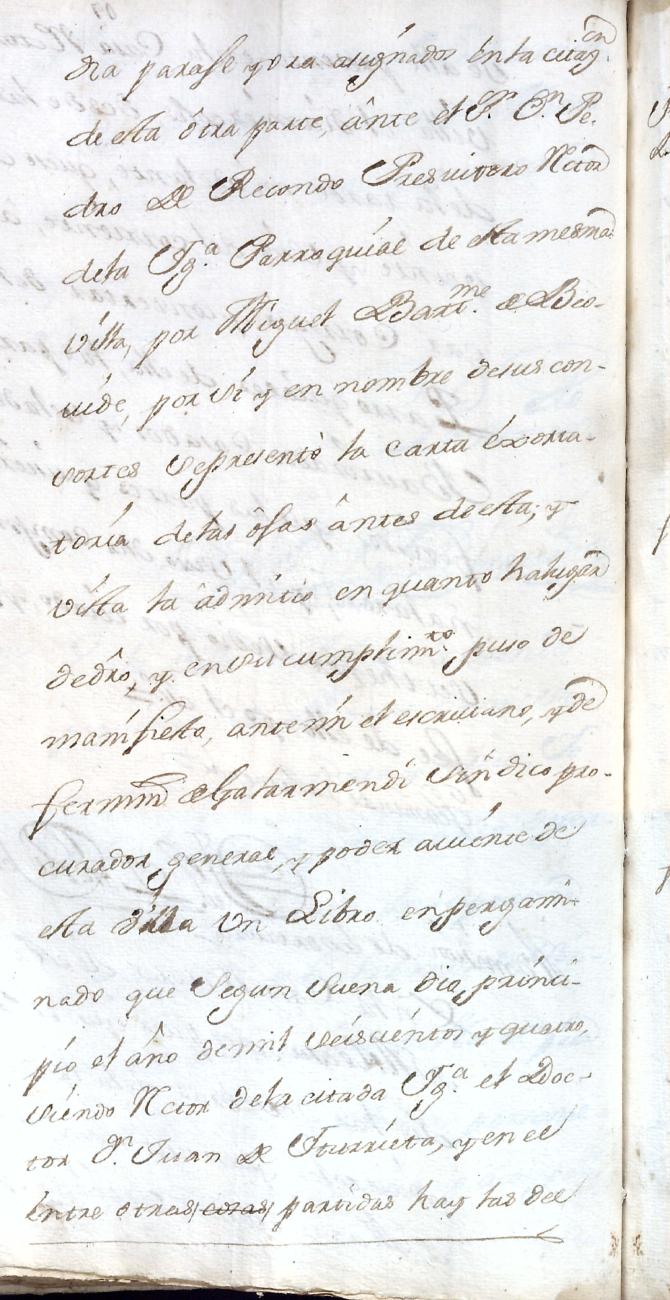 dia parase y ora asignados en la citaz.on
de esta ôtra parte, ânte el S.r D.n Pe-
dro de Recondo Presvitero Rctor
de la Ygª Parroquial de esta mesma
villa, por Miguel Bart.me de Beo-
vide, por si y en nombre de sus con-
sortes se presentò la Carta éxorta-
toria de las ôjas ântes de esta; y
vista la âdmitio en quanto ha lugar
de dro, y en su cumplim.to puso de
manifiesto, ante mi el escrivano, y de
fermin de Galarmendi sindico pro-
curador general, y poder aviente de
esta villa un Libro enpergami-
nado que segun suena dio princi-
pio el âño de mil seiscientos y quatro,
siendo Rctor de la citada Yg.ª el Doc-
tor D.n Juan de Yturrieta, y en el
entre otras cosas partidas hay las del